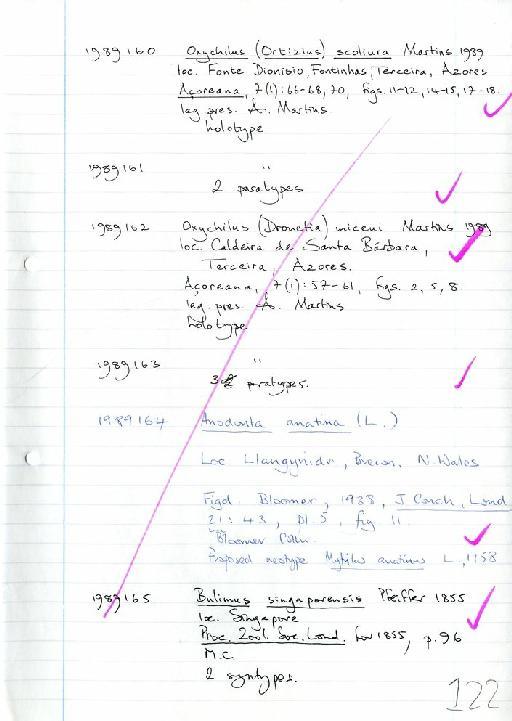 1989160 Oxychilus (Ortizius) scoliura Martins 1989
loc. Fonte Dionísio, Fontinhas, Terceira, Azores
Açoreana, 7(1): 63-68, 70, figs. 11-12, 14-15, 17-18.
leg. pres. A. Martins
holotype
1989161 "
2 paratypes
1989162 Oxychilus (Drouetia) miceui Martins 1989
loc. Caldeira de Santa Bárbara,
Terceira, Azores.
Açoreana, 7(1): 57-61, figs. 2, 5, 8
leg. pres. A. Martins
holotype
1989163 "
3 paratypes.
1989164 Anodonta anatina (L.)
Loc Llangynidr, Brecon. N. Wales
Figd. Bloomer, 1938, J. Conch. Lond
21: 43, pl. 5, fig 11.
Bloomer Colln.
Proposed neotype Mytilus anatinus L, 1758
1989165 Bulimus singaporensis Pfeiffer 1855
loc. Singapore
Proc. Zool. Soc. Lond. for 1855, p. 96
M.C.
2 syntypes.
122